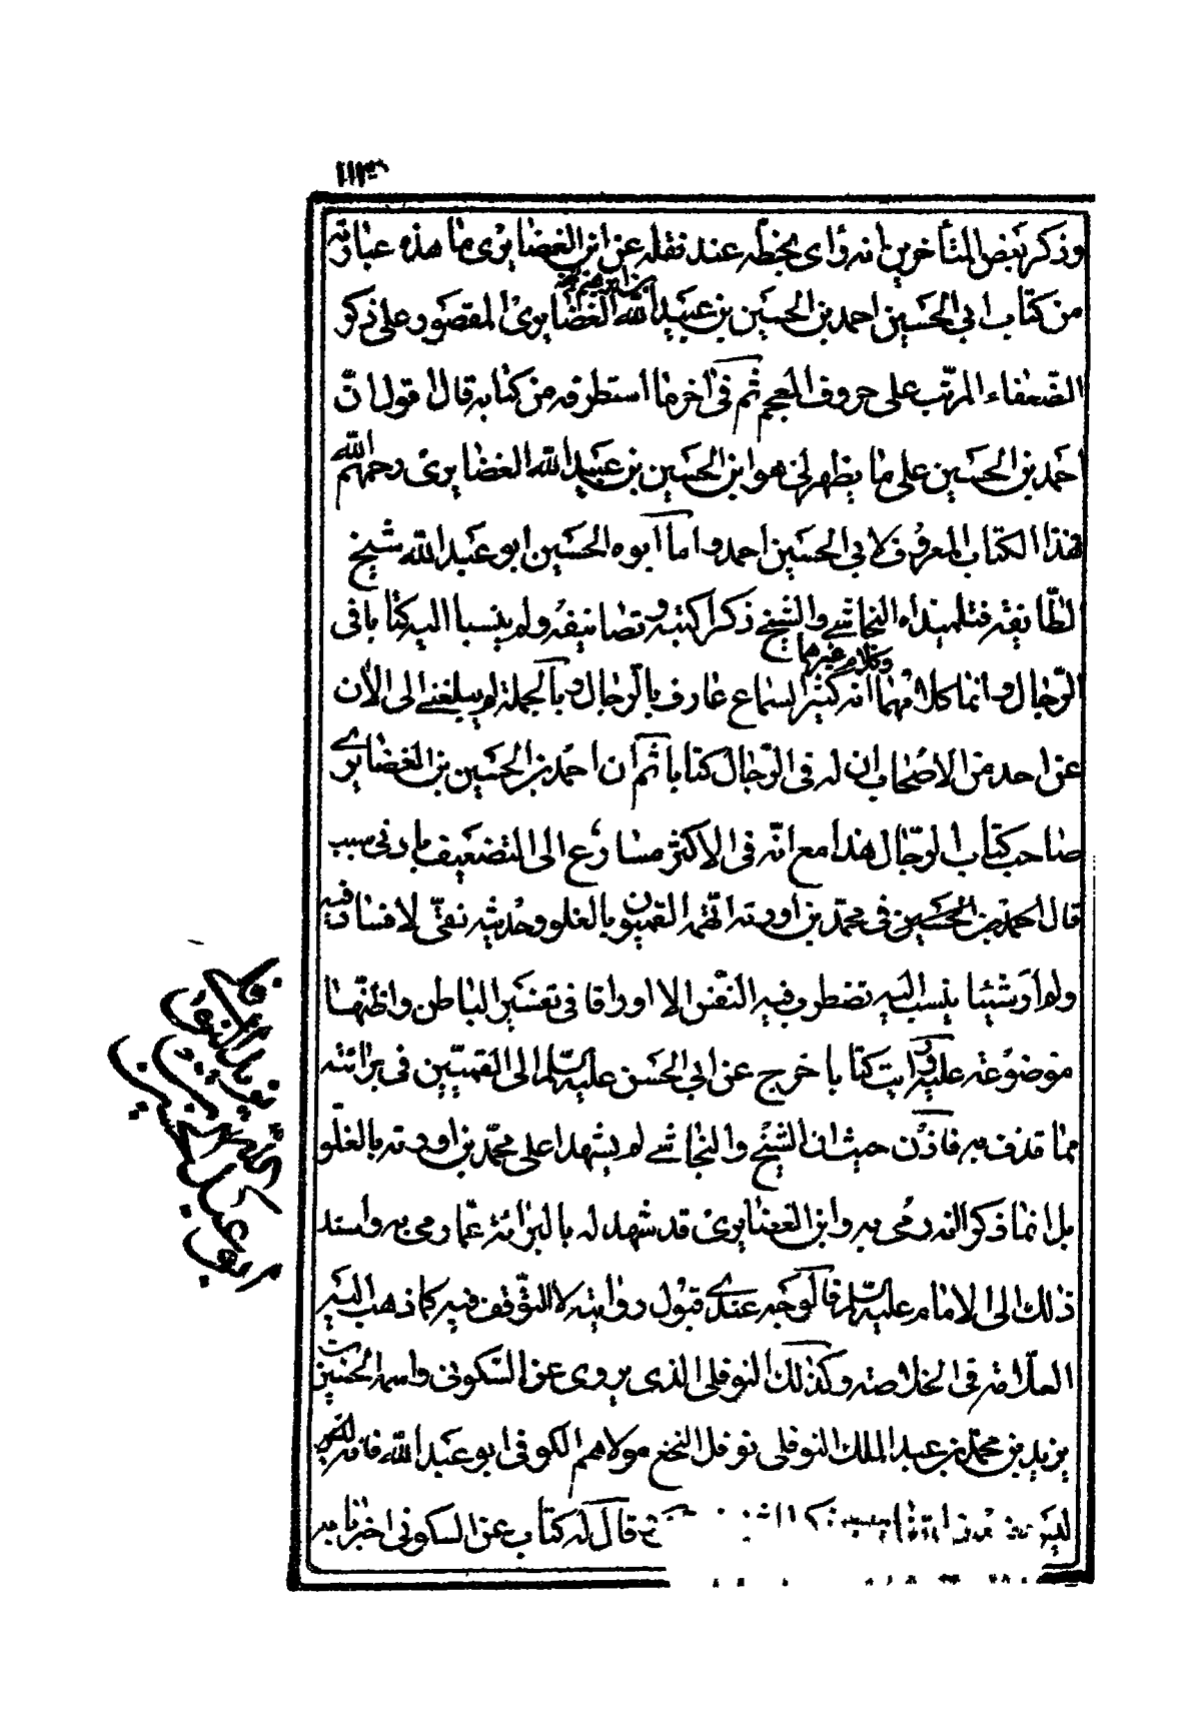 وذكر بعض المتأخرين انه رأى بخطه عند نقله عن ابن الغضايرى ما هذه عبارته
من كتاب ابى الحسين احمد بن الحسين بن عبيد الله بن ابراهيم الغضايرى المقصور على ذكر
الضعفاء المرتب على حروف المعجم ثم فى اخر ما استطرفه من كتابه قال اقول ان
احمد بن الحسين على ما يظهر لى هو ابن الحسين بن عبيد الله الغضايرى رحمهم الله
فهذا الكتاب المعروف لابى الحسين احمد واما ابوه الحسين ابو عبد الله شيخ
الطايفة فتلميذاه النجاشى والشيخ ذكرا كتبه وتصانيفه ولم ينسبا اليه كتابا فى
الرجال وانما كلامهما وكلام غيرهما انه كثير السماع عارف بالرجال وبالجملة لم يبلغنى الى الان
عن احد من الاصحاب ان له فى الرجال كتابا ثم ان احمد بن الحسين بن الغضايرى
صاحب كتاب الرجال هذا مع انه فى الاكثر مسارع الى التضعيف بادنى سبب
قال احمد بن الحسين فى محمد بن اورمة اتهمه القميون بالغلو وحديثه نقى لا فساد فيه
ولم ار شيئا ينسب اليه تضطرب فيه النفس الا اوراقا فى تفسير الباطن واظنها
موضوعة عليه ورايت كتابا خرج عن ابى الحسن عليه السلم الى القميين فى برائته
مما قذف به فاذن حيث ان الشيخ والنجاشى لم يشهدا على محمد بن اورمة بالغلو
بل انما ذكرا انه رمى به وابن الغضايرى قد شهد له بالبرائة عما رمى به واسند
ذلك الى الامام عليه السلم فالوجه عندى قبول روايته لا التوقف فيه كما ذهب اليه
العلامة فى الخلاصة وكذلك النوفلى الذى يروى عن السكونى واسمه الحسين بن
يزيد بن محمد بن عبد الملك النوفلى نوفل النخع مولاهم الكوفى ابو عبد الله فانه
قال له كتاب عن السكونى اخبرنا به